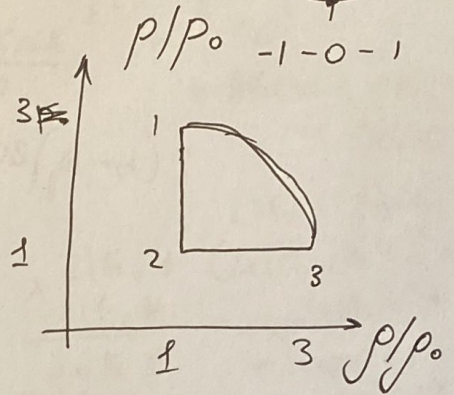 p/p₀ -1-0-1
3
1
1
2
3
1 3 ρ/ρ₀